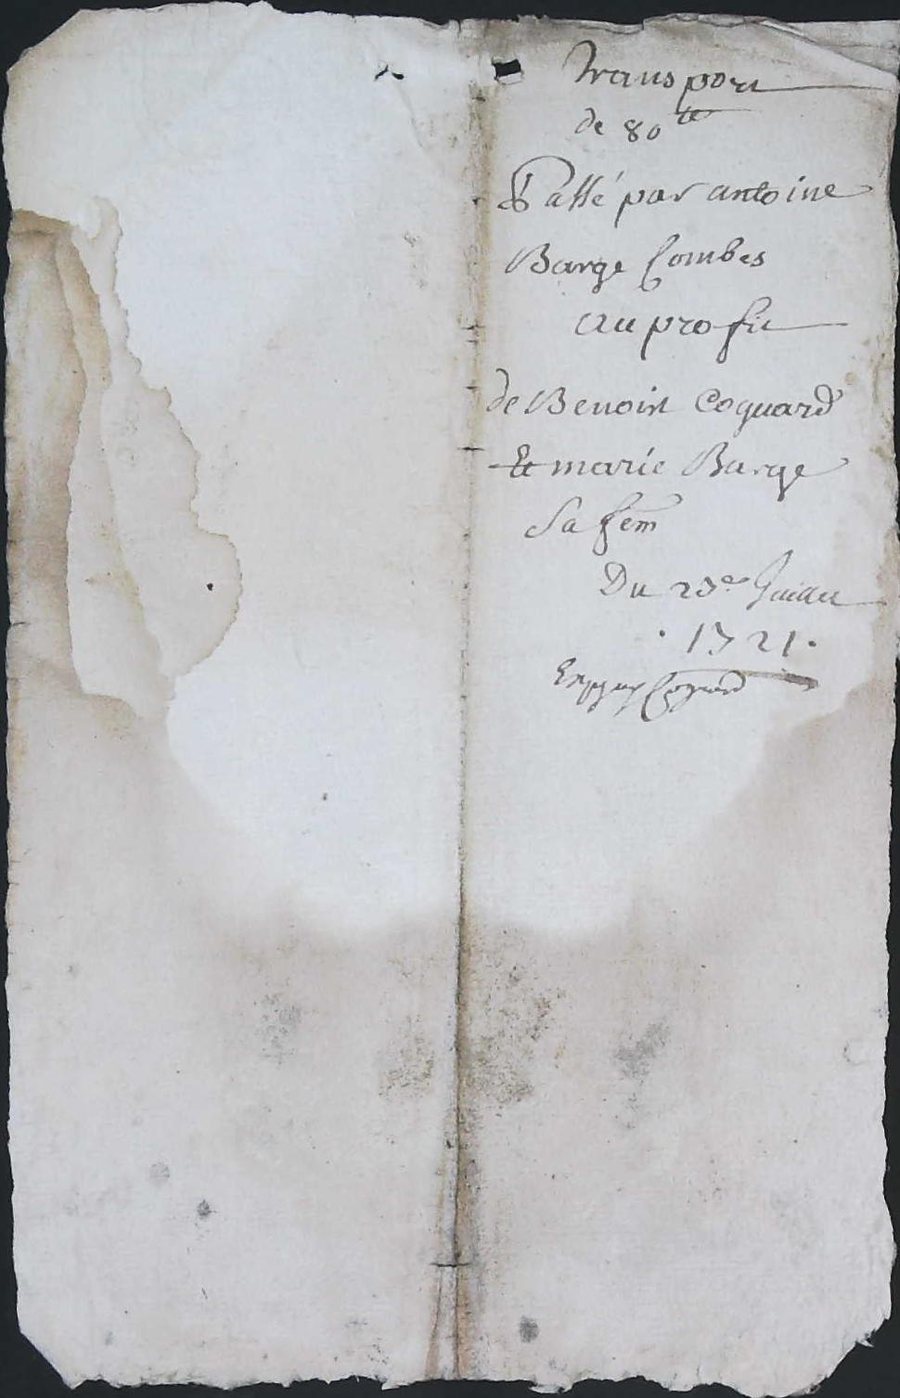 Transport
de 80 tt
Passé par antoine
Barge Combes
au profit
de Benoist Coquard
Et marie Barge
Sa fem
Du 23e Juillet
1721
Coquard